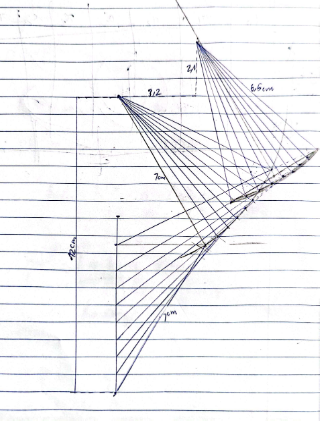 2,1
6,6cm
9,2
7cm
12cm
7cm